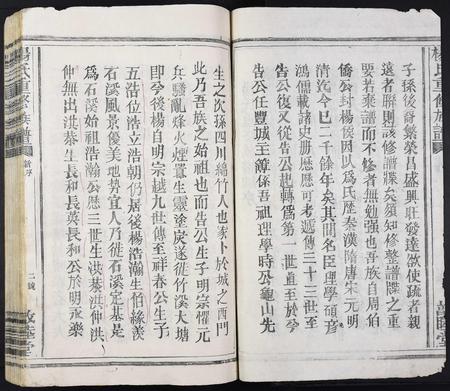 子孫後裔繁榮昌盛興旺發達欲使疏者親
遠者聯則該修譜牒矣須知修整譜牒之重
要若乘譜而不修者無勉強也吾族自周伯
僑公封楊侯因以為氏歷秦漢隋唐宋元明
清迄今已二千餘年矣其間名臣理學碩彥
鴻儒載諸史册歷歷可考遞傳三十三世至
告公復又從告公起轉為第一世直至於孕
告公任豐城王簿係吾祖理學時公龜山先
生之次孫四川綿竹人也家卜於城之西門
此乃吾族之始祖也而告公生子明宗懼元
兵騷亂烽火煙蔓生靈塗炭遂徙竹溪大塘
即孕後楊自明宗越九世傳至祥春公生子
五浩位浩立浩朝仍居後楊浩瀚生伯緣羨
石溪風景優美地勢宜人乃徙石溪定基是
為石溪始祖浩瀚公歷三世生洪棊洪仲洪
仲無出洪棊生長和長英長和公於明永樂
楊氏重修族譜
新序
二號
敦睦堂
楊氏重修族譜
敦睦堂